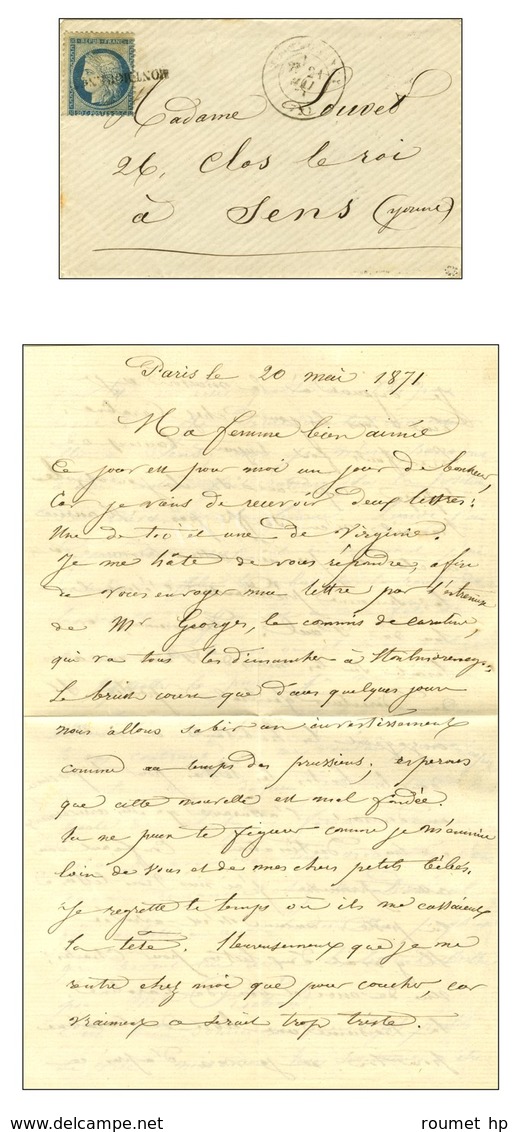 REPUB. FRANC.
MONTMORENCY
Madame Louvet
26, Clos le roi
à Sens (yonne)
Paris le 20 mai 1871
Ma femme bien aimée
Ce jour est pour moi un jour de bonheur,
Car je viens de recevoir deux lettres:
Une de toi et une de Virginie.
Je me hâte de vous répondre, afin
de vous envoyer ma lettre par l'entremise
de Mr Georges, le commis de Caroline,
qui va tous les dimanches à Montmorency.
Le bruit coure que dans quelques jours
nous allons subir un investissement
comme au temps des prussiens, esperons
que cette nouvelle est mal fondée.
Tu ne peux te figurer comme je m'ennuie
loin de vous et de mes chers petits bébés.
Je regrette le temps où ils me cassaient
la tête. Heureusement que je ne
rentre chez moi que pour coucher, car
vraiment ce serait trop triste.
roumet hp